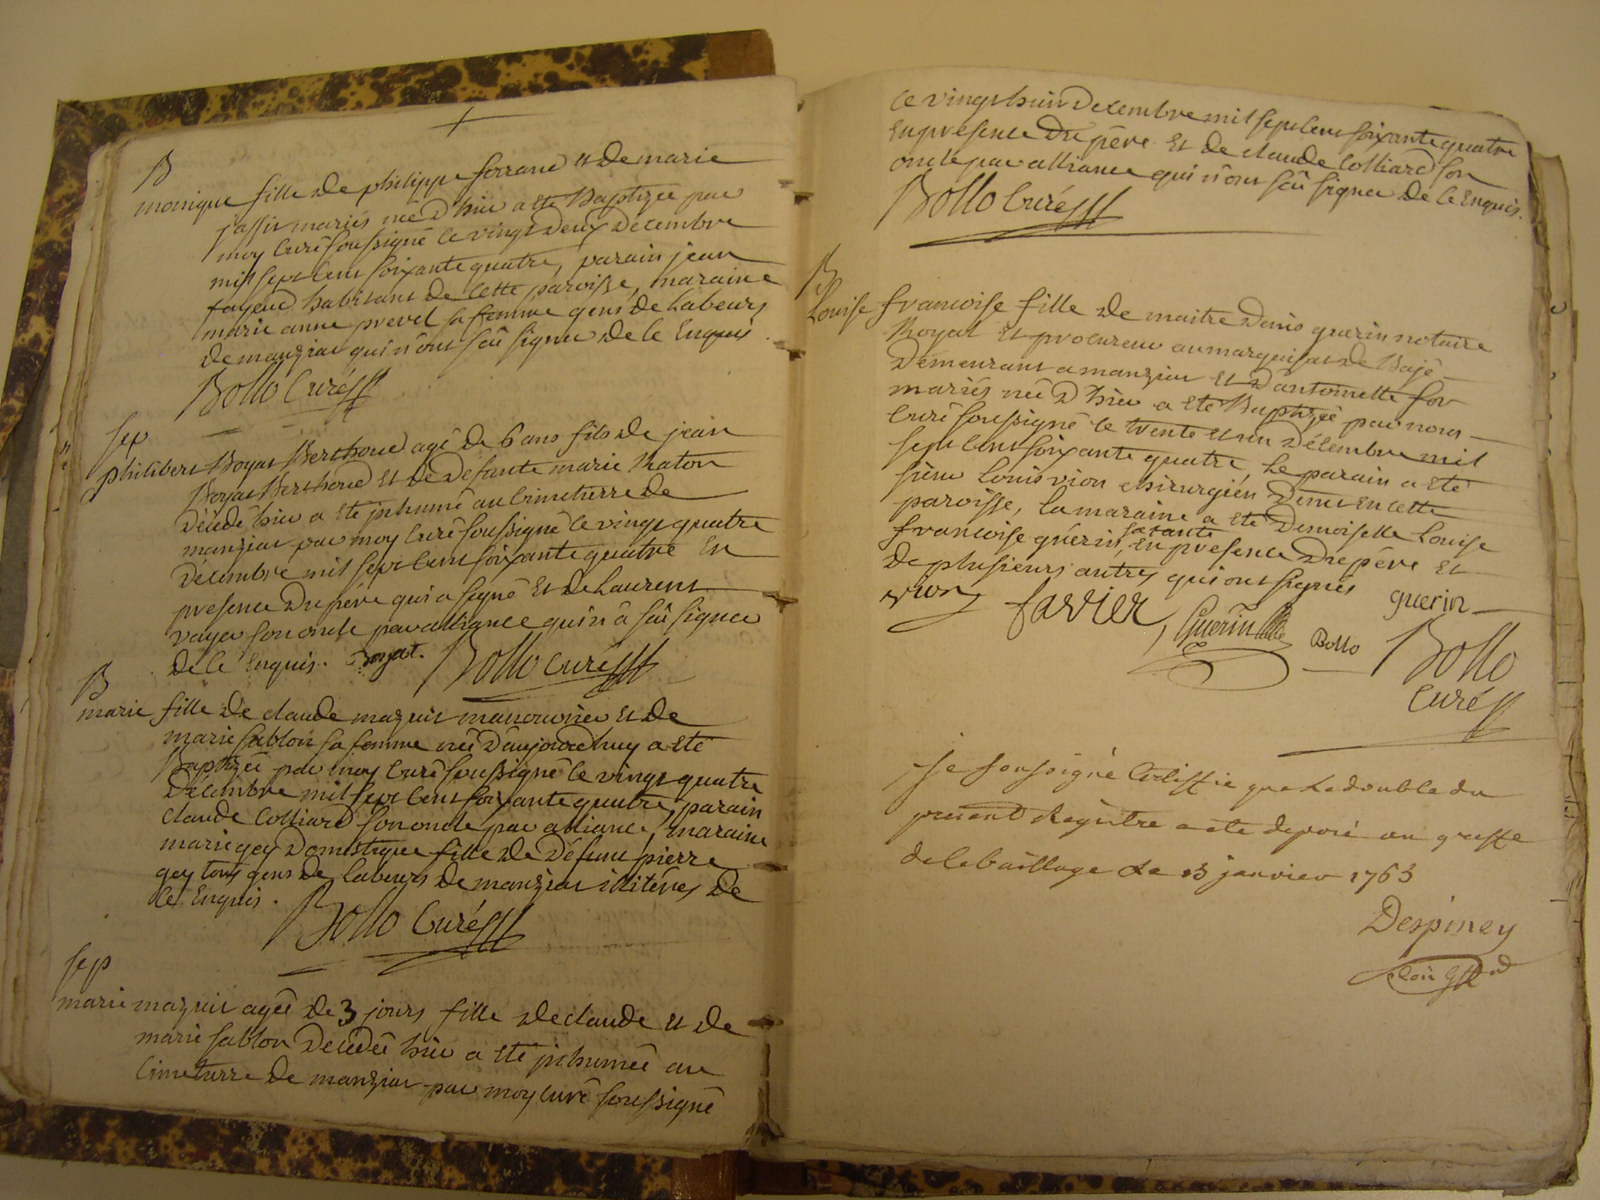 B
monique fille de philippe ferrand et de marie
jassir mariés née d'hier a été Baptizée par
moy Curé soussigné le vingt deux décembre
mil sept cent soixante quatre, parain jean
habitant de cette paroisse, maraine
marie anne prevel sa femme gens de Labeurs
de manziat qui n'ont sçû signer de ce Enquis.
Bollo Curé
sep
philibert Boyat Berthoud agé de 6 ans fils de jean
Boyat Berthoud et de defunte marie Raton
décédé hier a eté inhumé au Cimetierre de
manziat par moy Curé soussigné le vingt quatre
décembre mil sept cent soixante quatre En
presence du pere qui a signé Et de Laurent
voyer son oncle par alliance qui n'a sçû signer
de ce Enquis. Boyat. Bollo Curé
B
marie fille de claude mazuir manouvrier et de
marie sablon sa femme née d'aujourdhuy a eté
Baptizée par moy Curé soussigné le vingt quatre
décembre mil sept cent soixante quatre, parain
claude Colliard son oncle par alliance, maraine
marie gey domestique fille de défunt pierre
gey tous gens de labeurs de manziat illitérés de
ce Enquis.
Bollo Curé
sep
marie mazuir agée de 3 jours fille de claude et de
marie sablon décédée hier a eté inhumée au
Cimetierre de manziat par moy curé soussigné
le vingt huit décembre mil sept cent soixante quatre
En presence du père Et de claude Colliard son
oncle par alliance qui n'ont sçû signer de ce Enquis.
Bollo Curé
B
Louise francoise fille de maitre denis guerin notaire
Royal Et procureur au marquisat de Bagé
demeurant a manziat Et d'antoinette
mariés née d'hier a eté Baptizée par nous
Curé soussigné le trente et un décembre mil
sept cent soixante quatre, le parain a eté
sieur Louis vion chirurgien demt En cette
paroisse, la maraine a eté demoiselle Louise
francoise guérin sa tante En presence du père Et
de plusieurs autres qui ont signés
vion farrier Guerin guerin
Bollo Bollo
Curé
je soussigné Certiffie que Le double du
present Registre a eté deposé au greffe
de ce bailliage Le 13 janvier 1765
Despiney